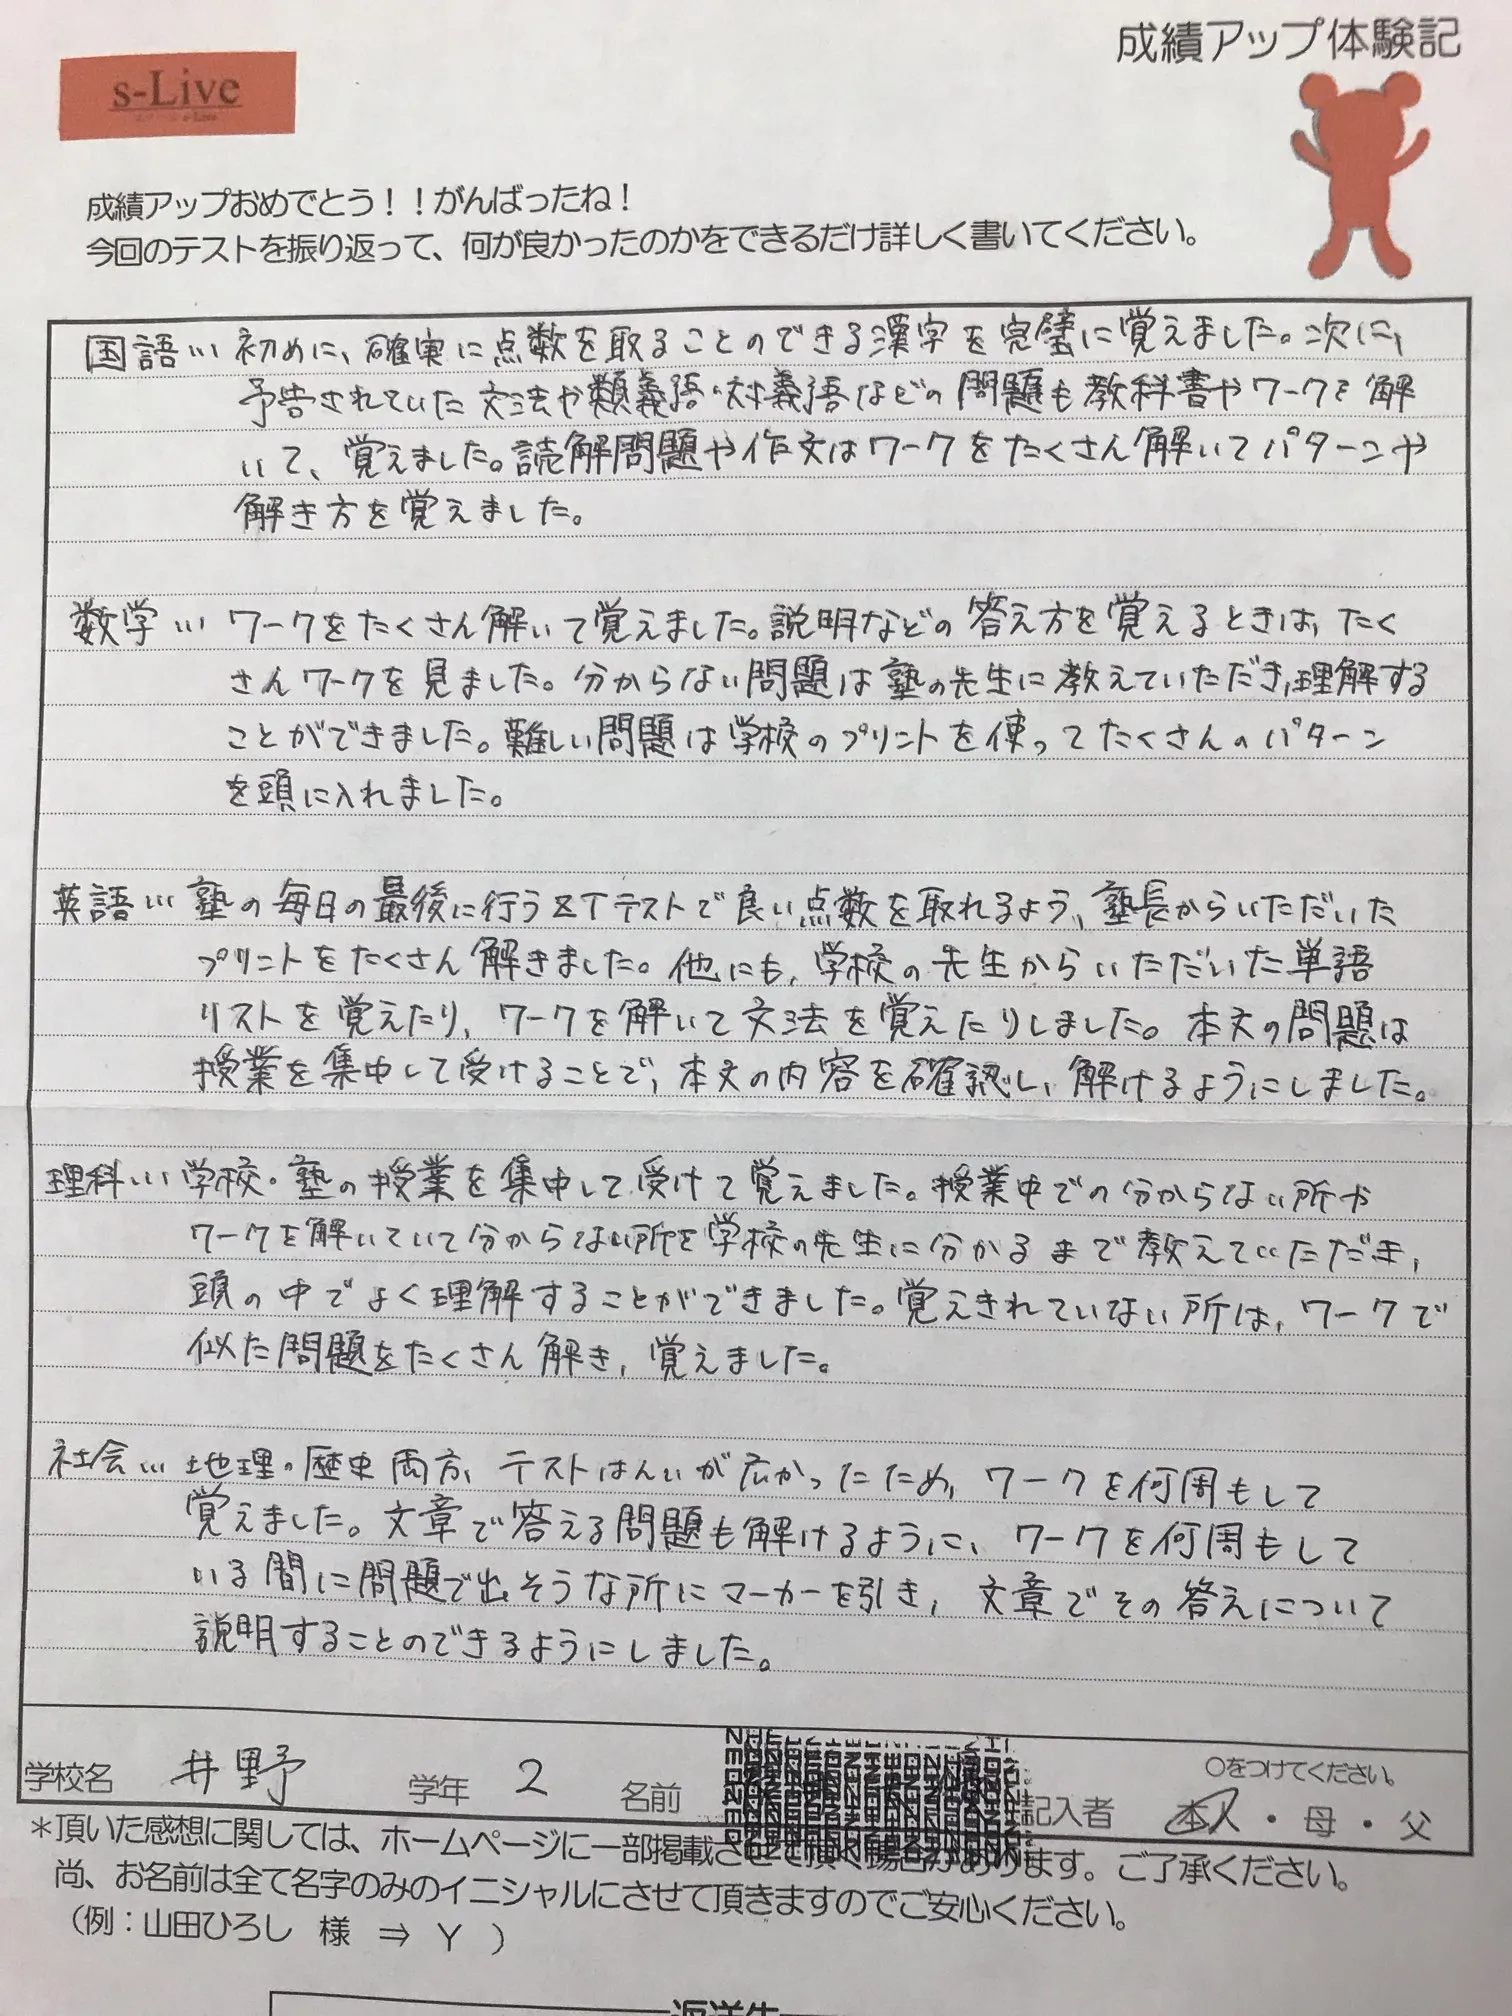 成績アップ体験記
s-Live
成績アップおめでとう！！がんばったね！
今回のテストを振り返って、何が良かったのかをできるだけ詳しく書いてください。
国語… 初めに、確実に点数を取ることのできる漢字を完璧に覚えました。次に、
予告されていた文法や類義語・対義語などの問題も教科書やワークを解
いて、覚えました。読解問題や作文はワークをたくさん解いてパターンや
解き方を覚えました。
数学… ワークをたくさん解いて覚えました。説明などの答え方を覚えるときは、たく
さんワークを見ました。分からない問題は塾の先生に教えていただき、理解する
ことができました。難しい問題は学校のプリントを使ってたくさんのパターン
を頭に入れました。
英語… 塾の毎日の最後に行うZTテストで良い点数を取れるよう、塾長からいただいた
プリントをたくさん解きました。他にも、学校の先生からいただいた単語
リストを覚えたり、ワークを解いて文法を覚えたりしました。本文の問題は
授業を集中して受けることで、本文の内容を確認し、解けるようにしました。
理科… 学校・塾の授業を集中して受けて覚えました。授業中での分からない所や
ワークを解いていて分からない所を学校の先生に分かるまで教えていただき、
頭の中でよく理解することができました。覚えきれていない所は、ワークで
似た問題をたくさん解き、覚えました。
社会… 地理・歴史両方、テストはんいが広かったため、ワークを何周もして
覚えました。文章で答える問題も解けるように、ワークを何周もして
いる間に問題で出そうな所にマーカーを引き、文章でその答えについて
説明することのできるようにしました。
学校名 井野 学年 2 名前 記入者 ○をつけてください。 本人・母・父
＊頂いた感想に関しては、ホームページに一部掲載させて頂く場合があります。ご了承ください。
尚、お名前は全て名字のみのイニシャルにさせて頂きますのでご安心ください。
（例：山田ひろし 様 ⇒ Y ）
返送先